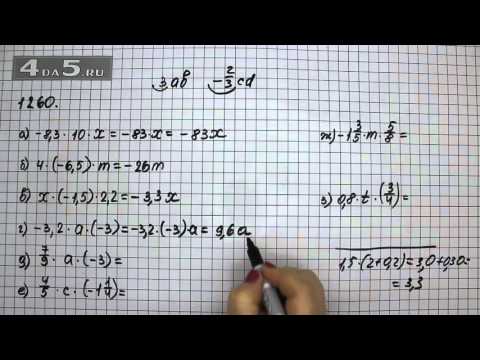 4DA5.RU
3ab -2/3cd
1260.
а) -8,3 · 10 · x = -83·x = -83x
б) 4 · (-6,5) · m = -26m
в) x · (-1,5) · 2,2 = -3,3x
г) -3,2 · a · (-3) = -3,2 · (-3)a = 9,6a
д) 7/9 · a · (-3) =
е) 4/5 · c · (-1 1/4) =
ж) -1 3/5 · m · 5/8 =
з) 0,8 · t · (3/4) =
1,5 · (2+0,2) = 3,0 + 0,3 =
= 3,3